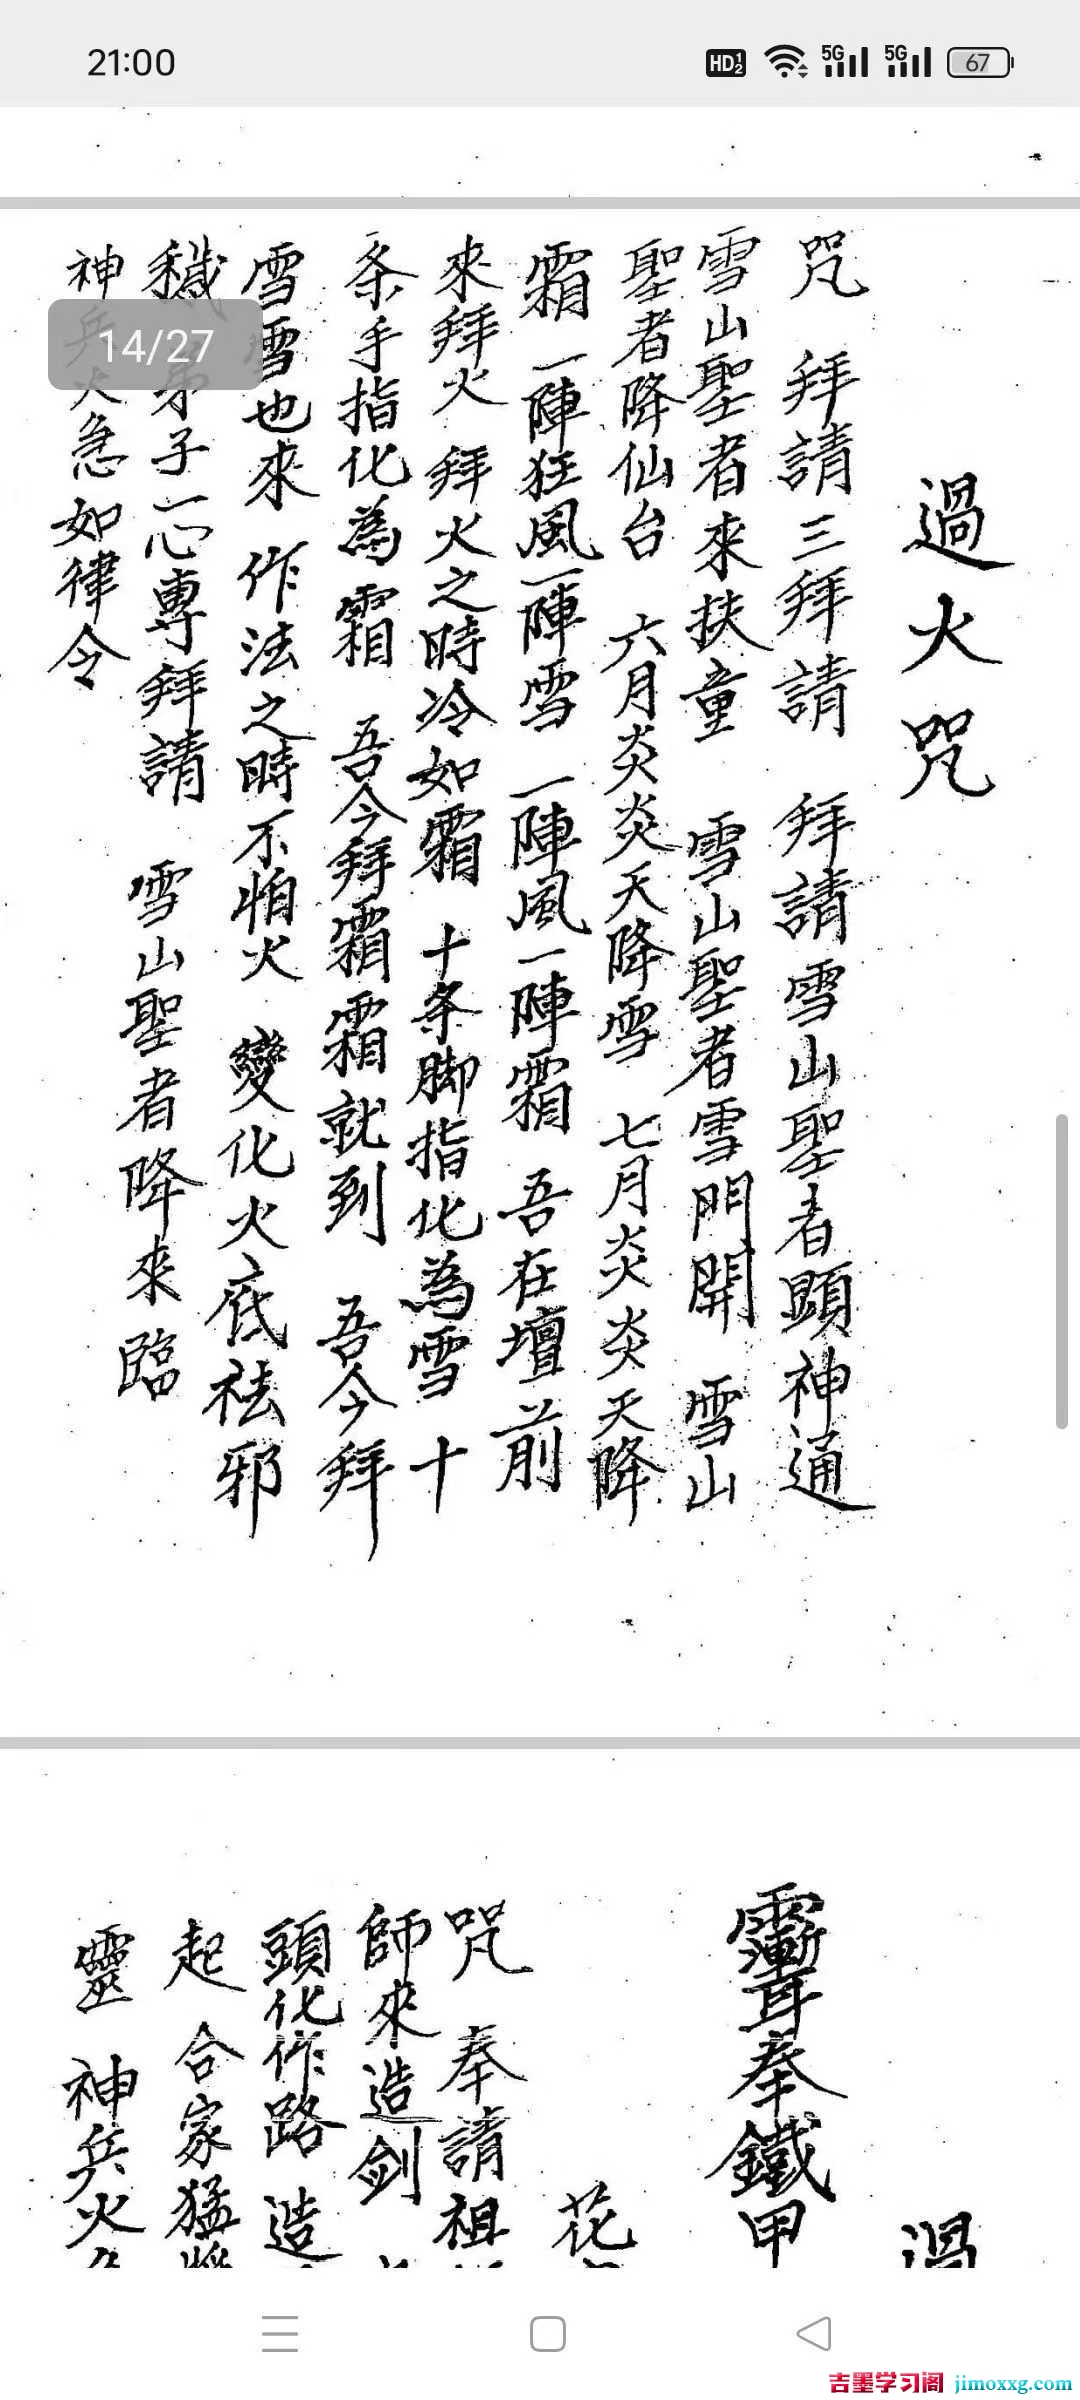 21:00
HD 1 2 5G 5G 67
14/27
過火咒
咒 拜請三拜請 拜請雪山聖者顕神通
雪山聖者來扶童 雪山聖者雪門開 雪山
聖者降仙台 六月炎炎天降雪 七月炎炎天降
霜 一陣狂風一陣雪 一陣風一陣霜 吾在壇前
來拜火 拜火之時冷如霜 十条脚指化為雪 十
条手指化為霜 吾今拜霜霜就到 吾今拜
雪雪也來 作法之時不怕火 變化火底祛邪
穢 弟子一心專拜請 雪山聖者降來臨
神兵火急如律令
過
奉鐵甲
花
咒 奉請祖
師來造剑
頭化作路 造
起 合家猛
靈 神兵火
吉墨学习阁 jimoxxg.com